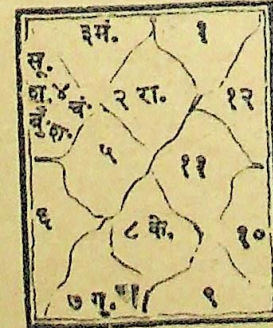 ३मं. १
सू.
४
बु. चं. २ रा. १२
५ ११
६ ८ के. १०
७ गु. ९